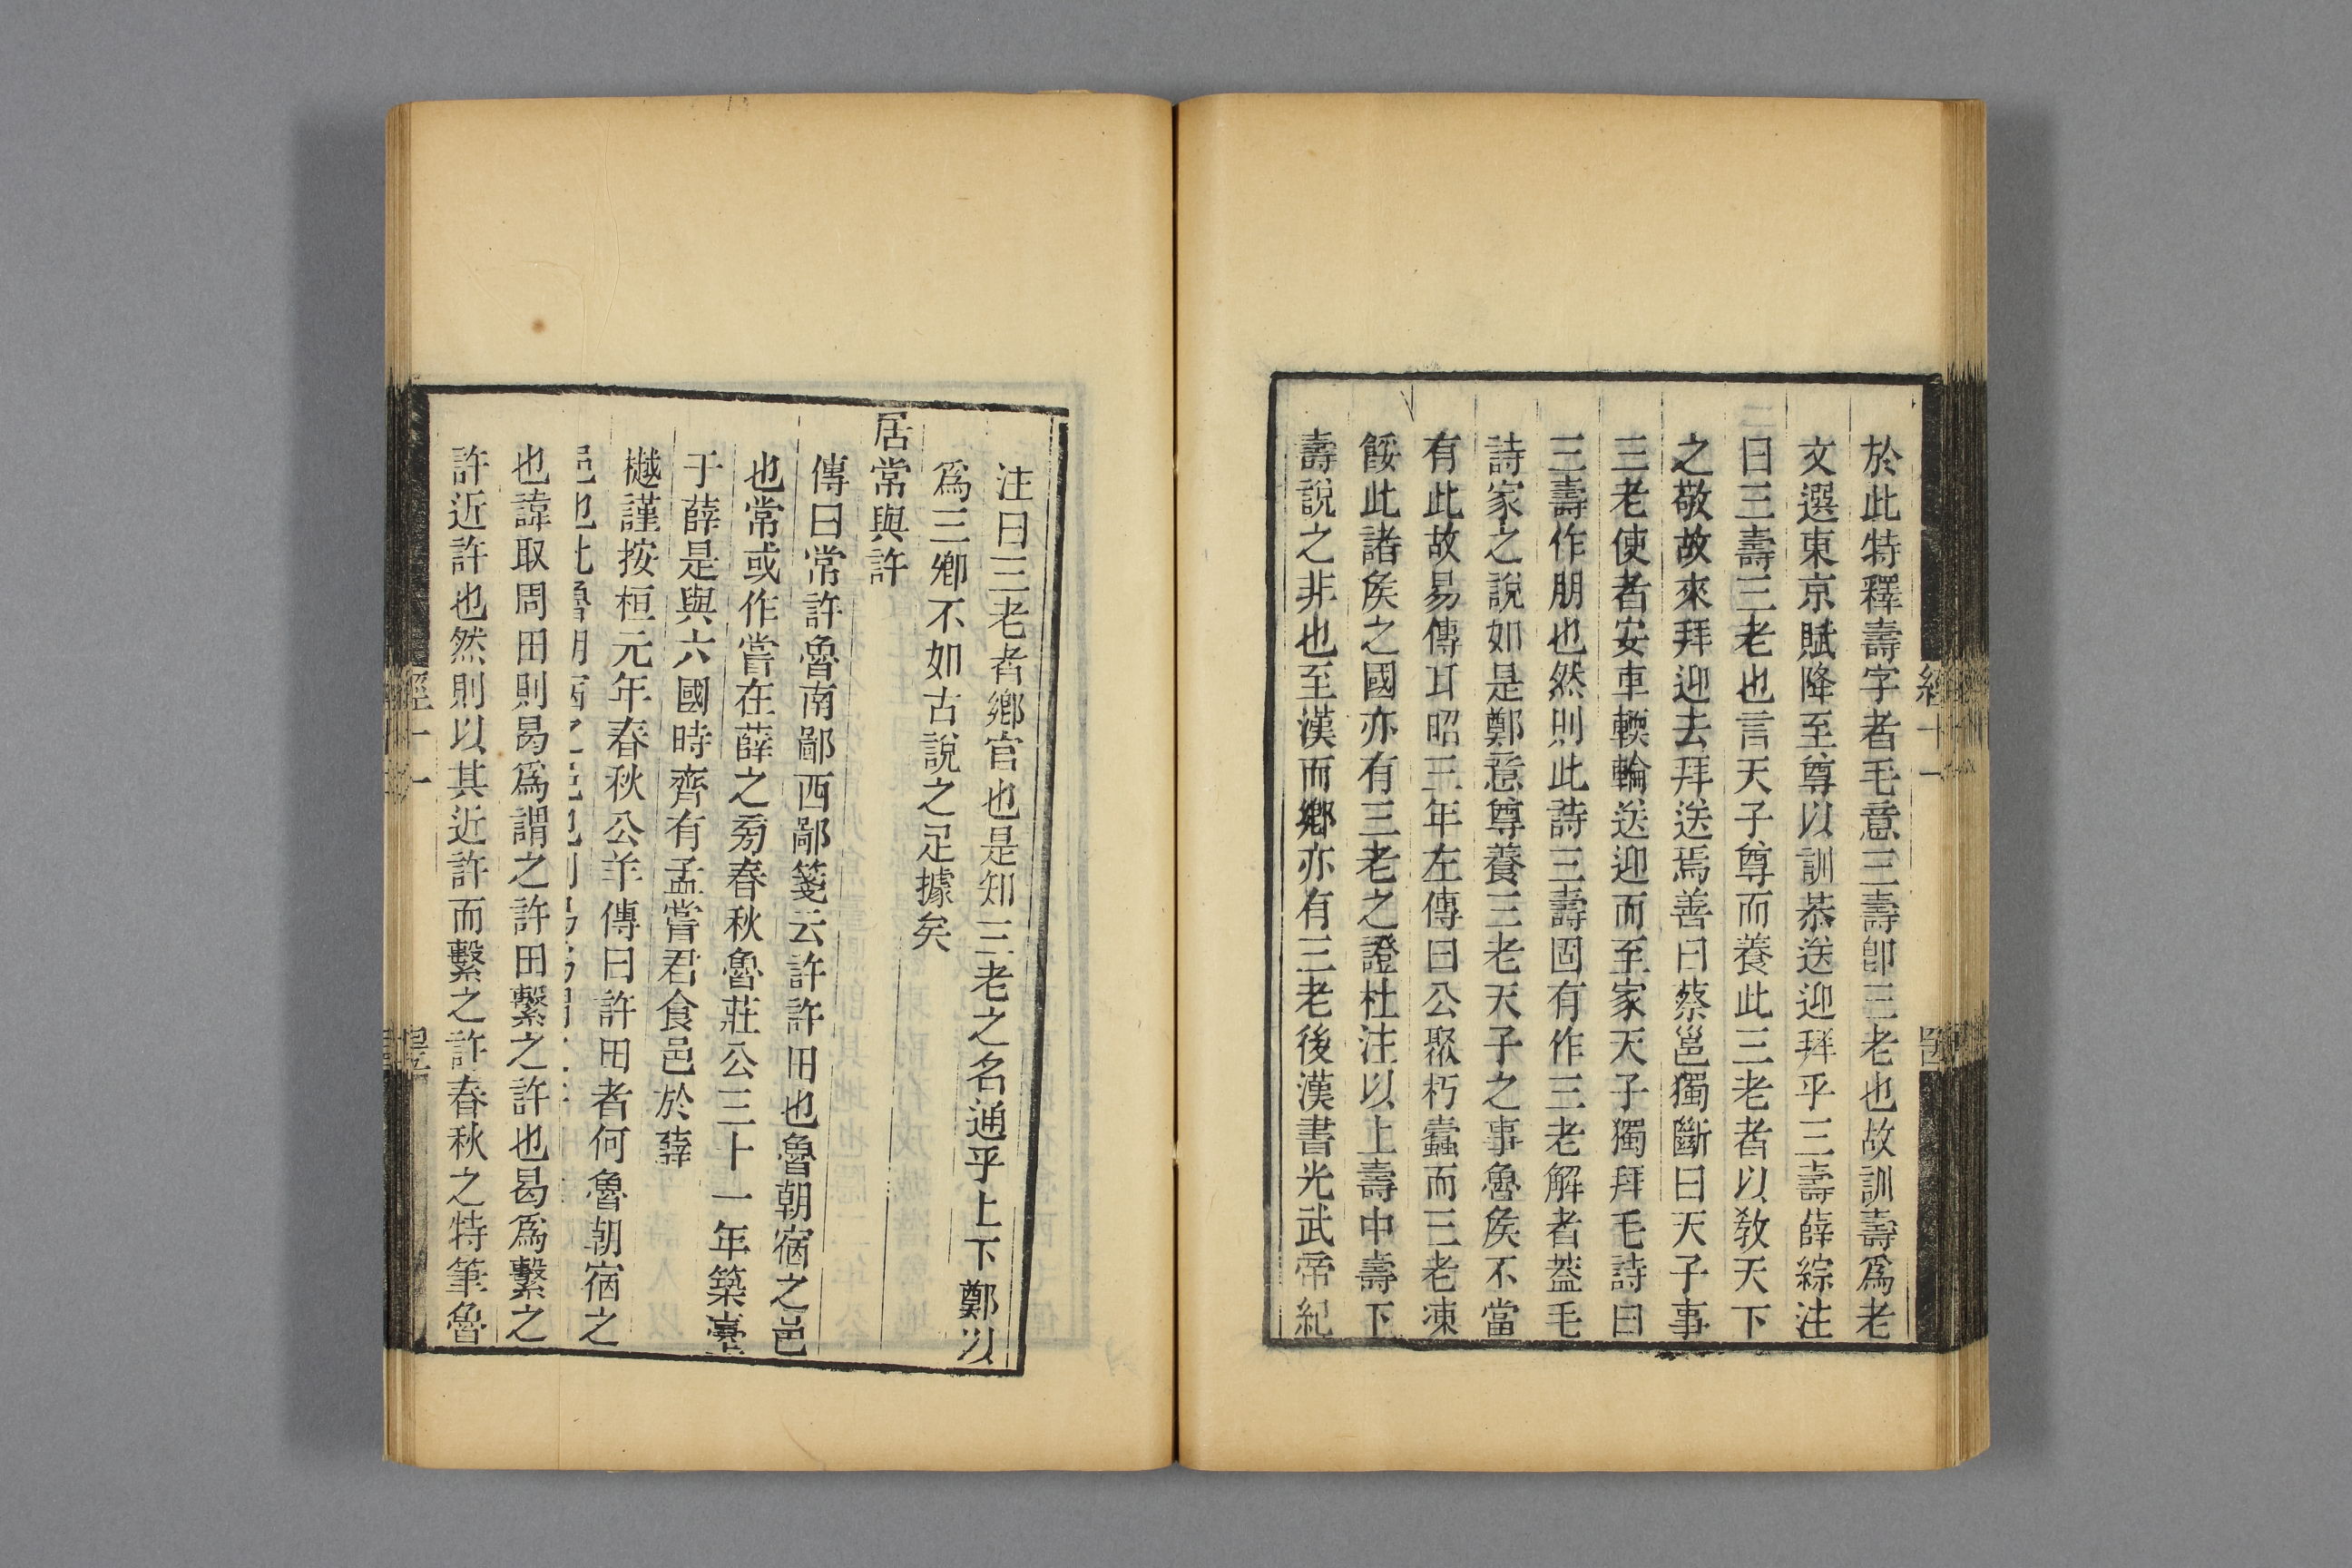 於此特釋壽字者毛意三壽卽三老也故訓壽爲老
文選東京賦降至尊以訓恭送迎拜乎三壽薛綜注
曰三壽三老也言天子尊而養此三老者以敎天下
之敬故來拜迎去拜送焉善曰蔡邕獨斷曰天子事
三老使者安車輭輪送迎而至家天子獨拜毛詩曰
三壽作朋也然則此詩三壽固有作三老解者葢毛
詩家之說如是鄭意尊養三老天子之事魯矦不當
有此故易傳耳昭三年左傳曰公聚朽蠹而三老凍
餒此諸矦之國亦有三老之證杜注以上壽中壽下
壽說之非也至漢而鄉亦有三老後漢書光武帝紀
經十一
注曰三老者鄉官也是知三老之名通乎上下鄭以
爲三卿不如古說之足據矣
居常與許
傳曰常許魯南鄙西鄙箋云許許田也魯朝宿之邑
也常或作嘗在薛之旁春秋魯莊公三十一年築臺
于薛是與六國時齊有孟嘗君食邑於薛
樾謹按桓元年春秋公羊傳曰許田者何魯朝宿之
邑也此魯朝宿之邑也則曷爲謂之許
也諱取周田則曷爲謂之許田繫之許也曷爲繫之
許近許也然則以其近許而繫之許春秋之特筆魯
經十一